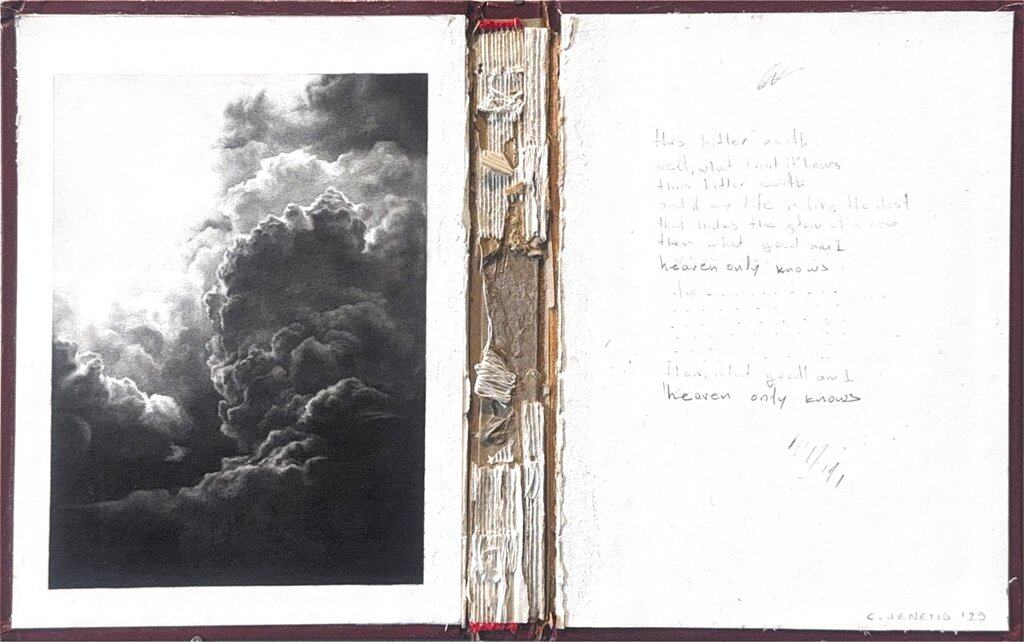 this bitter earth
well, what fruit it bears
this bitter earth
and if my life is like the dust
that hides the glow of a rose
then what good am I
heaven only knows
then, what good am I
heaven only knows
C. VENETIS '23